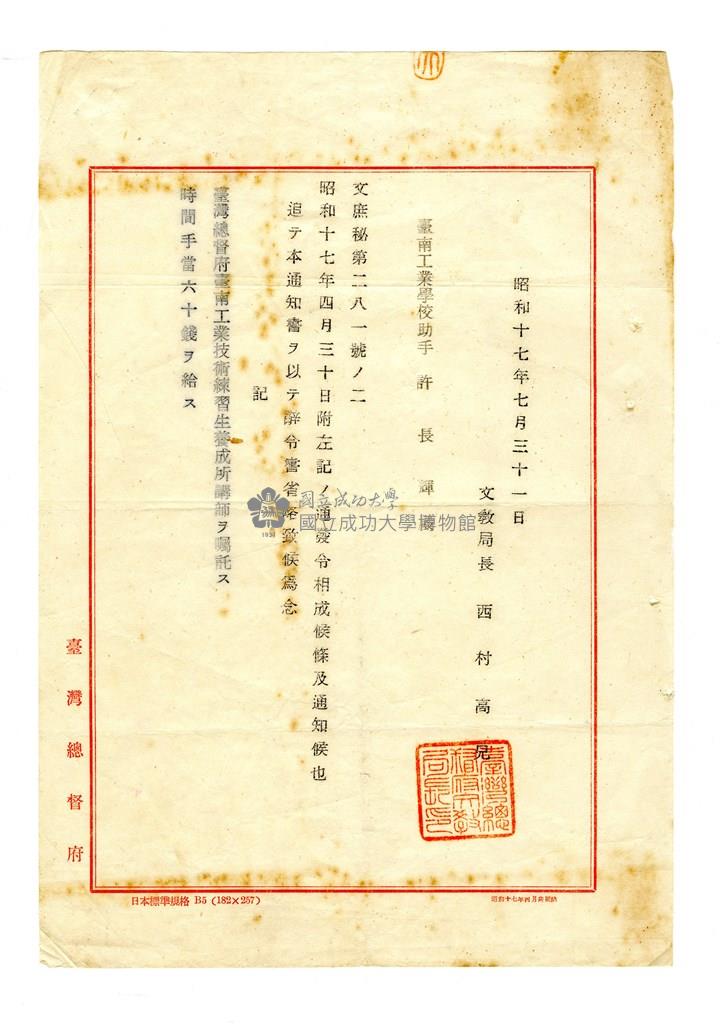 昭和十七年七月三十一日
文敎局長 西村高兄
臺灣總督府文敎局長印
臺南工業學校助手 許長輝
文庶秘第二八一號ノ二
昭和十七年四月三十日附左記ノ通發令相成候條及通知候也
追テ本通知書ヲ以テ辭令書省略致候爲念
記
臺灣總督府臺南工業技術練習生養成所講師ヲ囑託ス
時間手當六十錢ヲ給ス
臺灣總督府
日本標準規格 B5 (182×257)
昭和十七年四月
國立成功大學
國立成功大學博物館
1931